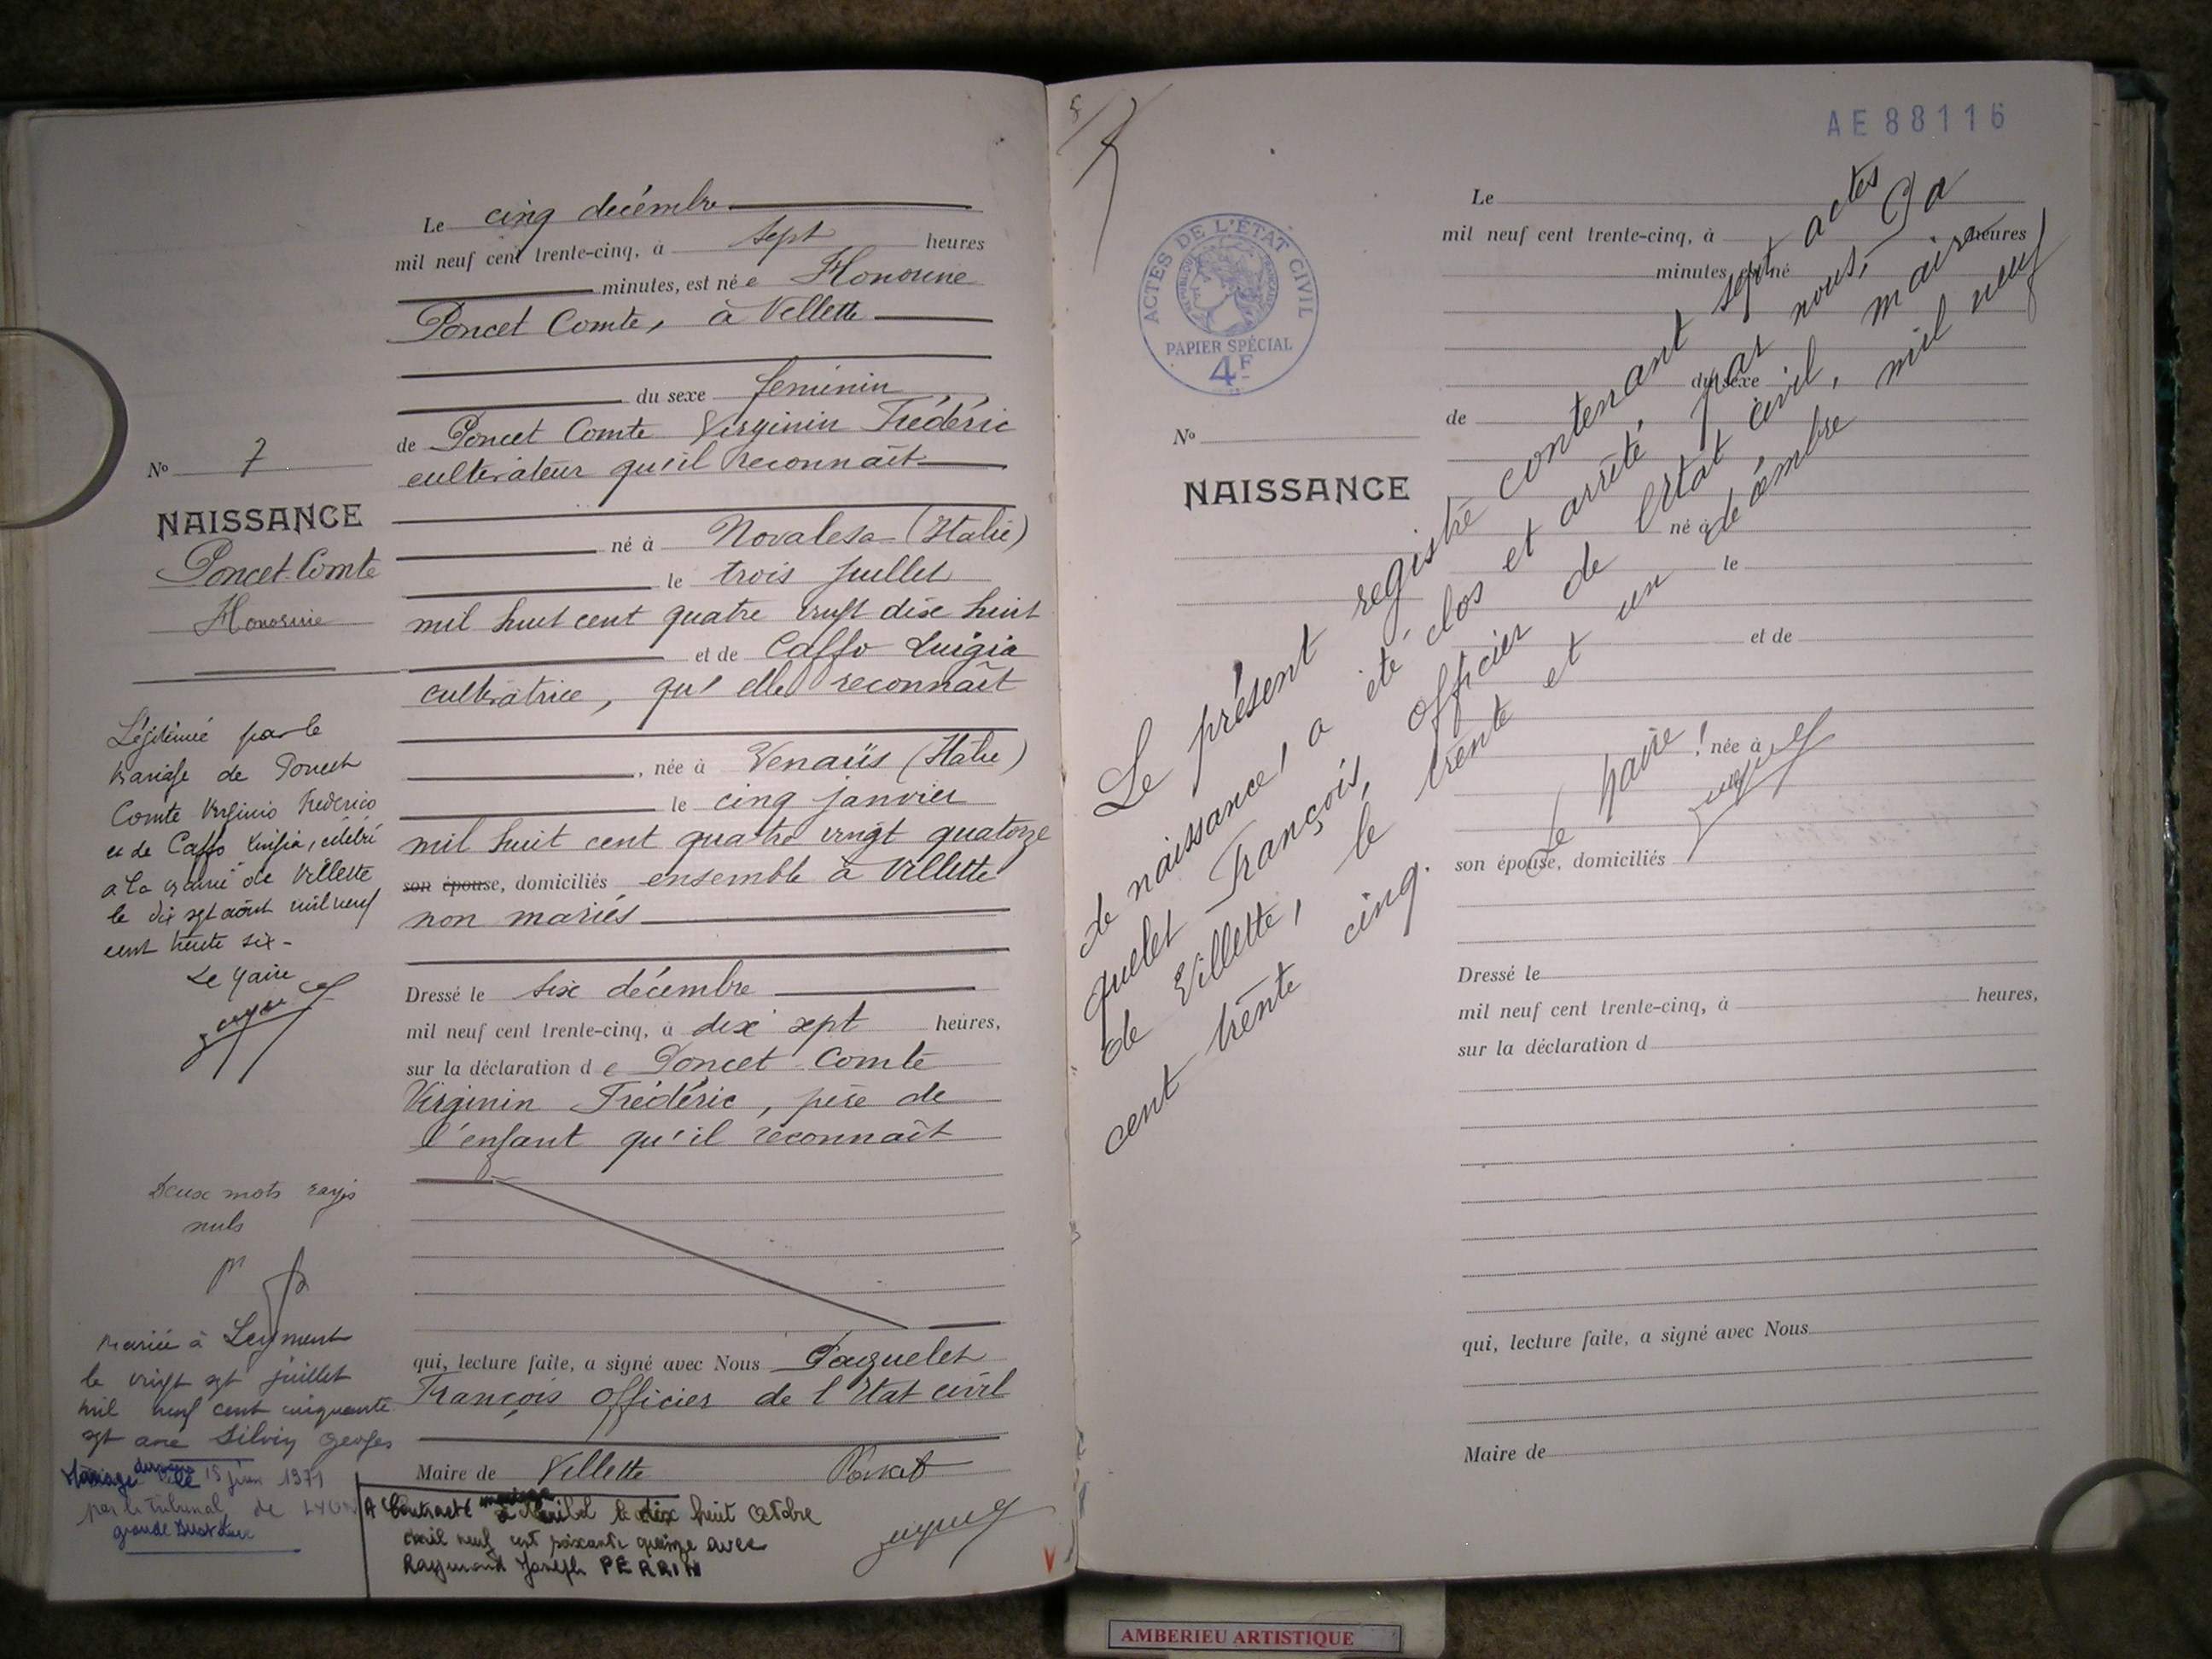 Le cinq décembre
mil neuf cent trente-cinq, à sept heures
minutes, est né e Honorine
Poncet Comte, à Villette
du sexe féminin
de Poncet Comte Virginin Frédéric
cultivateur qu'il reconnaît
né à Novalesa (Italie)
le trois juillet
mil huit cent quatre vingt dix huit
et de Caffo Luigia
cultivatrice, qu'elle reconnaît
, née à Venaüs (Italie)
le cinq janvier
mil huit cent quatre vingt quatorze
son épouse, domiciliés ensemble à Villette
non mariés
Dressé le six décembre
mil neuf cent trente-cinq, à dix sept heures,
sur la déclaration d e Poncet Comte
Virginin Frédéric, père de
l'enfant qu'il reconnaît
qui, lecture faite, a signé avec Nous Paquelet
François officier de l'Etat civil
Maire de Villette
Poncet
No 7
NAISSANCE
Poncet-Comte
Honorine
Légitimée par le
mariage de Poncet
Comte Virginio Frederico
et de Caffo Luigia, célébré
à la mairie de Villette
le dix sept août mil neuf
cent trente six -
Le Maire
Deux mots rayés
nuls
Mariée à Leyment
le vingt sept juillet
mil neuf cent cinquante
sept avec Silvin Georges
Mariage dissous le 15 juin 1971
par le tribunal de LYON
grande Instance
A Contracté mariage à Miribel le dix huit Octobre
mil neuf cent soixante quinze avec
Raymond Joseph PERRIN
AE88116
ACTES DE L'ÉTAT CIVIL
RÉPUBLIQUE FRANÇAISE
PAPIER SPÉCIAL
4F
Le
mil neuf cent trente-cinq, à heures
minutes, est né
du sexe
de
No
NAISSANCE
né à
le
et de
, née à
son épouse, domiciliés
Dressé le
mil neuf cent trente-cinq, à heures,
sur la déclaration d
qui, lecture faite, a signé avec Nous
Maire de
Le présent registre contenant sept actes
de naissance, a été clos et arrêté, par nous, Pa
quelet François, officier de l'Etat civil, maire
de Villette, le trente et un décembre mil neuf
cent trente cinq.
Le Maire
AMBERIEU ARTISTIQUE